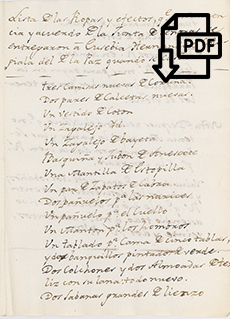 Lista D las Ropas y efectos, q
cia y acuerdo D la Junta D
entregaron a Eusebia
D la Paz quando
PDF
tres Camisas nuevas D
Dos pares D Calcetas, nuevas.
Un Vestido D Coton
Un Zagalejo Id.
Un Zagalejo D bayeta
Basquiña y Jubon D
Una Mantilla D Estopilla
Un par D Zapatos D
Dos pañuelos p.ª las narices
Un pañuelo p.ª el Cuello
Un Manton p.ª los hombros
Un tablado p.ª Cama D Cinco tablas,
y dos banquillos pintados D verde
Dos Colchones y dos Almoadas D
liz con su lana, todo nuevo.
Dos Sabanas grandes D lienzo